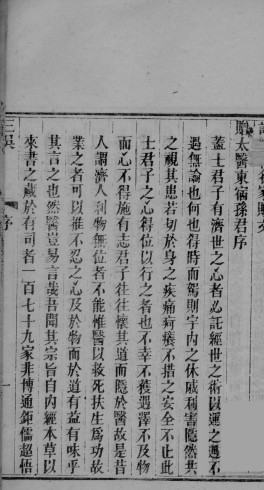 贈太醫東宿孫君序
蓋士君子有濟世之心者必託經世之術以通之遇不
遇無論也何也得時而駕則宇內之休戚利害隱然共
之視其患若切於身之疾痛疴癢不措之安全不止此
士君子之心得位以行之者也不幸不獲遇澤不及物
而心不得施有志君子往往懷其道而隱於醫故是昔
人謂濟人利物無位者不能惟醫以救死扶生為功故
業之者可以推不忍之心及於物而於道有益有味乎
其言之也然醫豈易言哉吾聞其宗旨自內經本草以
來書之藏於有司者一百七十九家非博通鉅儒超悟
三吳
序